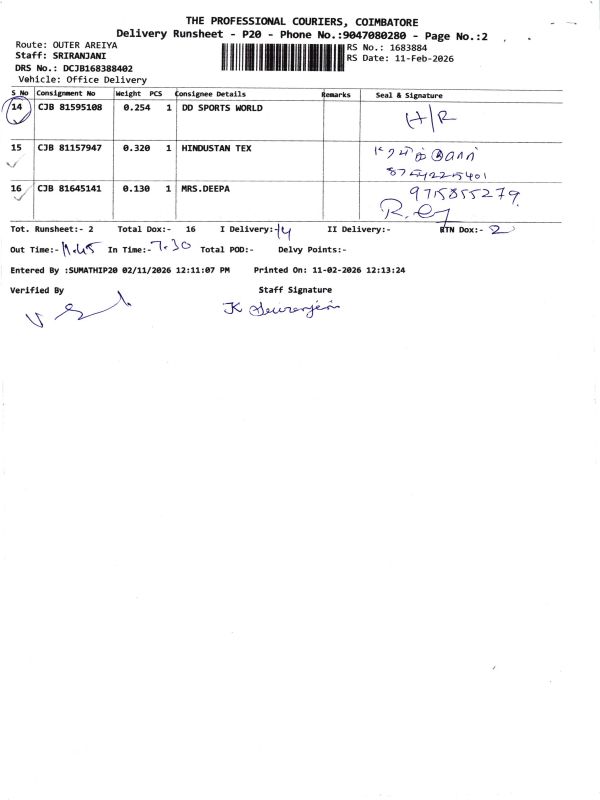 THE PROFESSIONAL COURIERS, COIMBATORE
Delivery Runsheet - P20 - Phone No.:9047080280 - Page No.:2
Route: OUTER AREIYA
RS No.: 1683884
Staff: SRIRANJANI
RS Date: 11-Feb-2026
DRS No.: DCJB168388402
Vehicle: Office Delivery
S No Consignment No Weight PCS Consignee Details Remarks Seal & Signature
14 CJB 81595108 0.254 1 DD SPORTS WORLD H/R
15 CJB 81157947 0.320 1 HINDUSTAN TEX
16 CJB 81645141 0.130 1 MRS.DEEPA 9715855279
Tot. Runsheet:- 2 Total Dox:- 16 I Delivery:- 14 II Delivery:- RTN Dox:- 2
Out Time:- 11.45 In Time:- 7.30 Total POD:- Delvy Points:-
Entered By :SUMATHIP20 02/11/2026 12:11:07 PM Printed On: 11-02-2026 12:13:24
Verified By Staff Signature